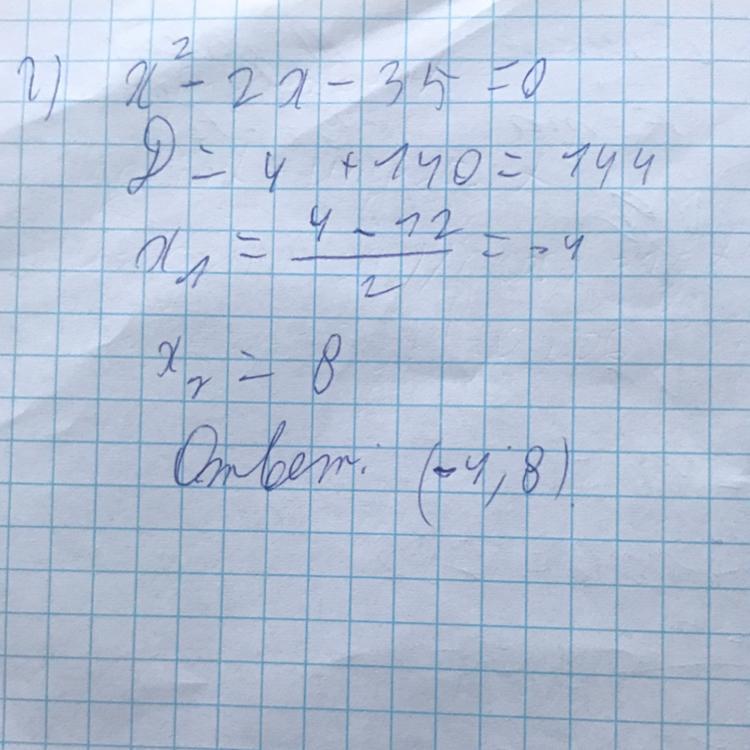 г) x² - 2x - 35 = 0
D = 4 + 140 = 144
x₁ = (4 - 12)/2 = -4
x₂ = 8
Ответ: (-4; 8)